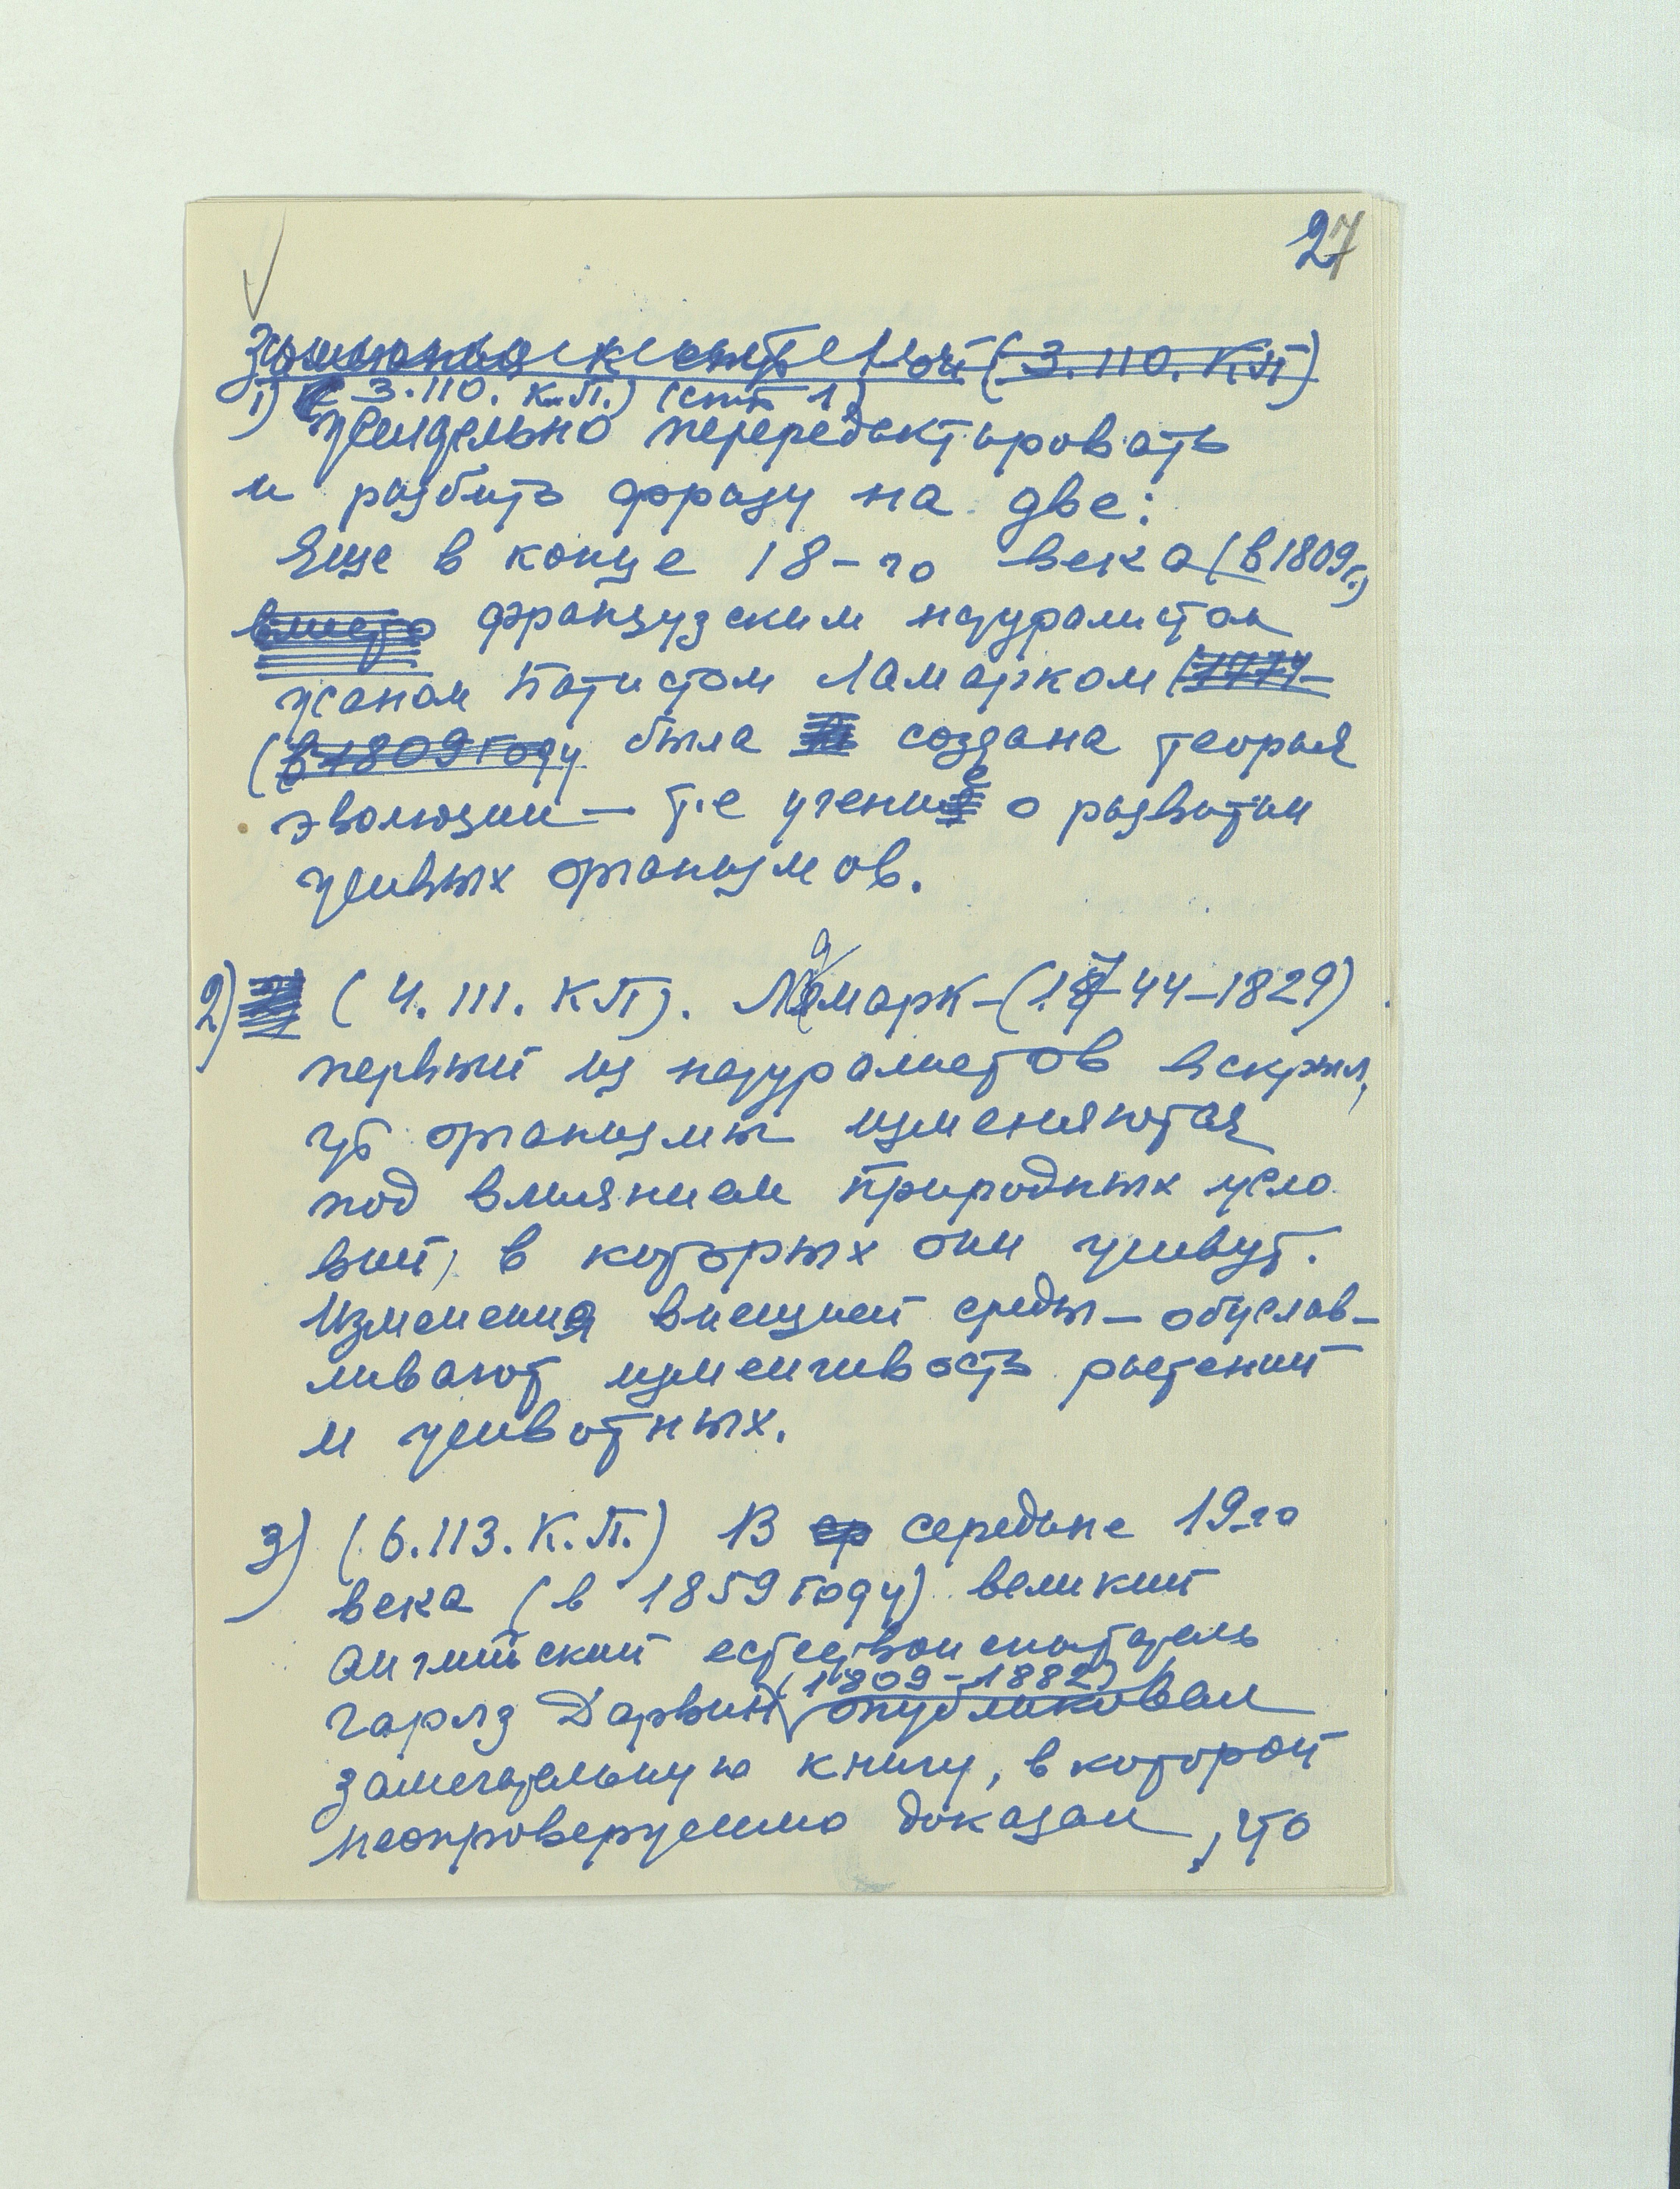 27
Замечания к стр 1-ой (3.110. КП)
1) (3.110. К.П.) (стр 1)
Желательно перередактировать
и разбить фразу на две:
Еще в конце 18-го века (в 1809 г.)
вместо французским натуралистом
Жаном Батистом Ламарком (1744
(в 1809 году была создана теория
эволюции — т.е учение о развитии
живых организмов.
2) (4. 111. КП). Ламарк - (1744-1829)
первый из натуралистов вскрыл,
что организмы изменяются
под влиянием природных усло
вий, в которых они живут.
Изменения внешней среды - обуслав-
ливают изменчивость растений
и животных.
3) (6.113. К.П.) В ср середине 19-го
века (в 1859 году) великий
английский естествоиспытатель
Чарлз Дарвин (1809-1882) опубликовал
замечательную книгу, в которой
неопровержимо доказал, что